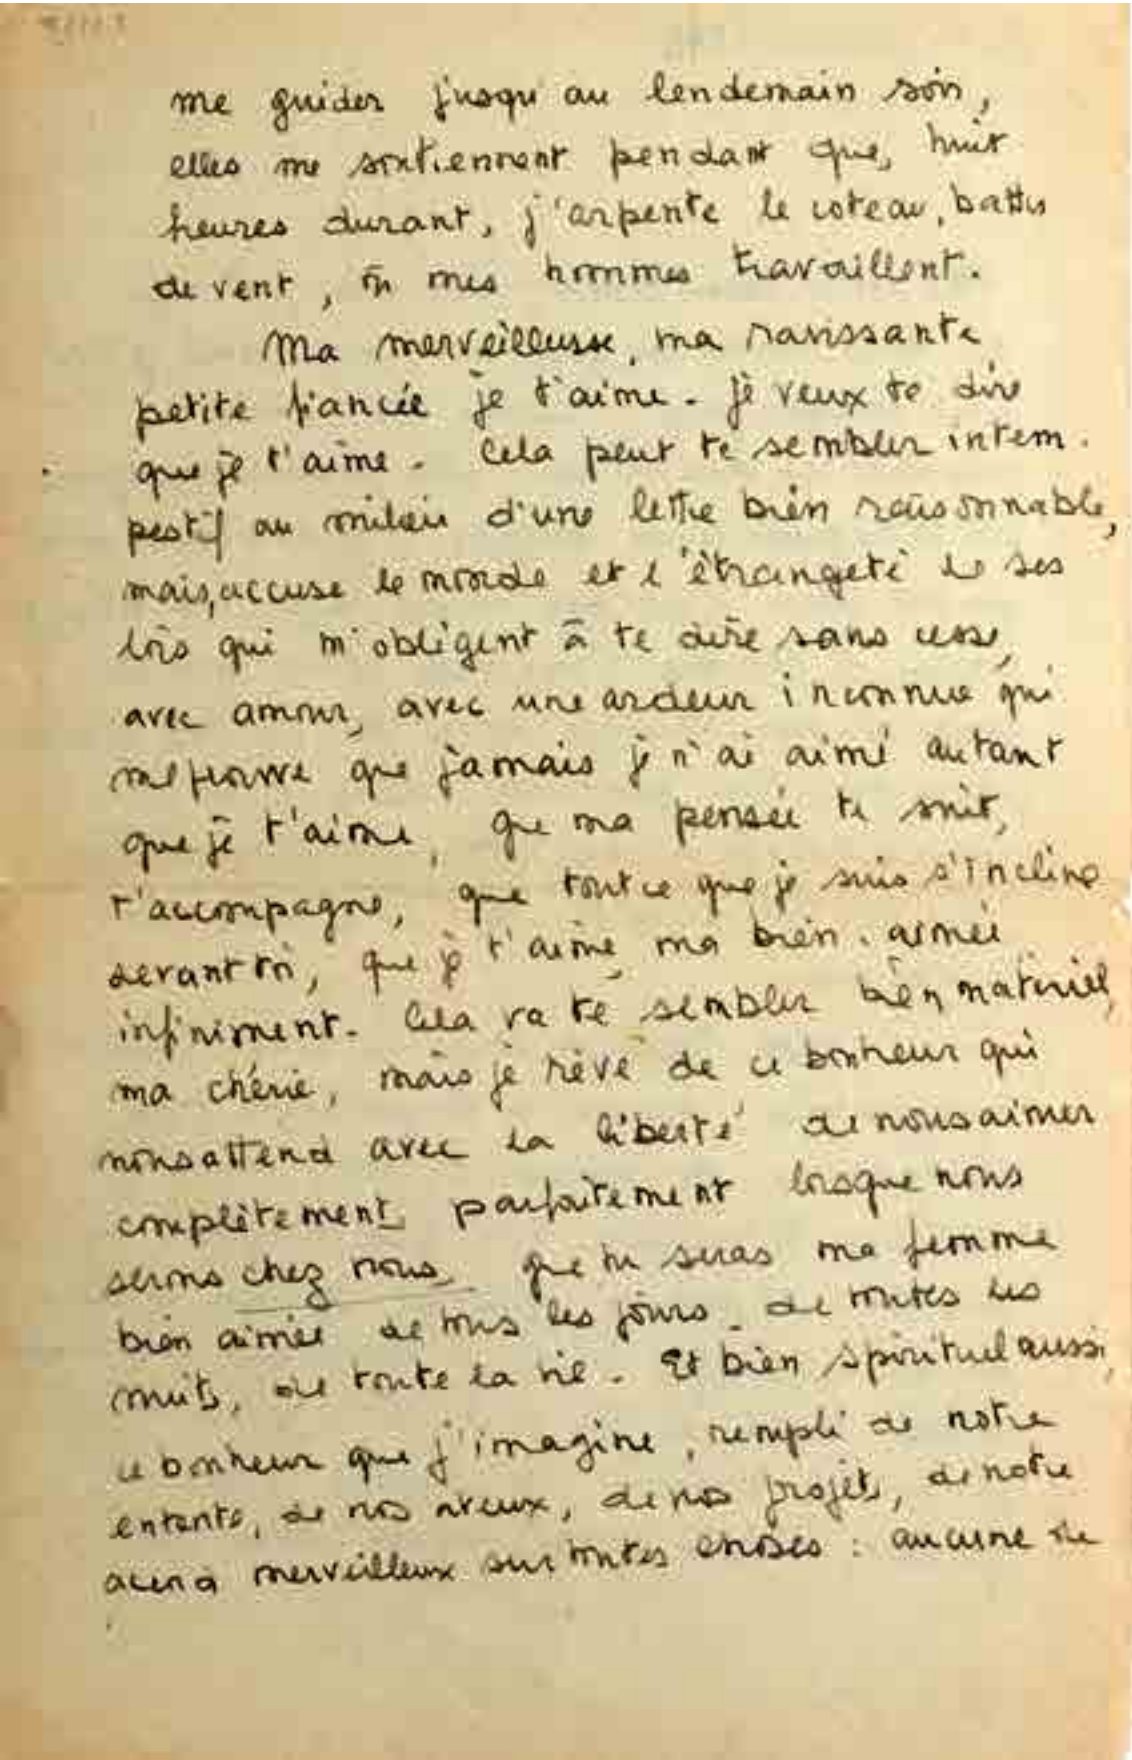 me guider jusqu'au lendemain soir,
elles me soutiennent pendant que, huit
heures durant, j'arpente le coteau, battu
de vent, où mes hommes travaillent.
Ma merveilleuse, ma ravissante
petite fiancée je t'aime. je veux te dire
que je t'aime. Cela peut te sembler intem-
pestif au milieu d'une lettre bien raisonnable,
mais, accuse le monde et l'étrangeté de ses
lois qui m'obligent à te dire sans cesse,
avec amour, avec une ardeur inconnue qui
me prouve que jamais je n'ai aimé autant
que je t'aime, que ma pensée te suit,
t'accompagne, que tout ce que je suis s'incline
devant toi, que je t'aime, ma bien-aimée
infiniment. Cela va te sembler bien matériel,
ma chérie, mais je rêve de ce bonheur qui
nous attend avec la liberté de nous aimer
complètement, parfaitement lorsque nous
serons chez nous, que tu seras ma femme
bien aimée de tous les jours, de toutes les
nuits, de toute la vie. Et bien spirituel aussi,
ce bonheur que j'imagine, rempli de notre
entente, de nos vœux, de nos projets, de notre
accord merveilleux sur toutes choses : aucune de